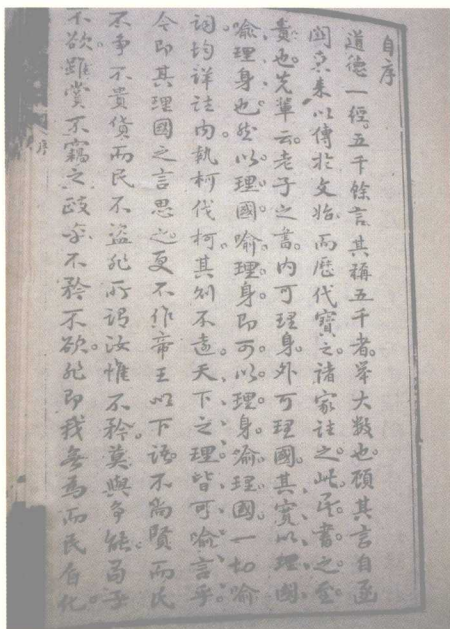 自序
道德一經。五千餘言。其稱五千者。举大数也。顾其言自函
関真來以傳於文始。而歷代寶之。諸家註之。此其書之至
貴也。先輩云。老子之書。內可理身。外可理國。其實以理國
喻理身也。然以理國喻理身。即可以理身喻理國。一切喻
詞均詳註內。執柯伐柯。其則不遠。天下之理皆可喻言乎
今即其理國之言思之。更不作帝王以下語。不尚賢而民
不争。不貴貨而民不盗。非所謂汝惟不矜。莫與争能。苟子
不欲。雖賞不竊之改。不矜不欲。非即我無為而民自化
序